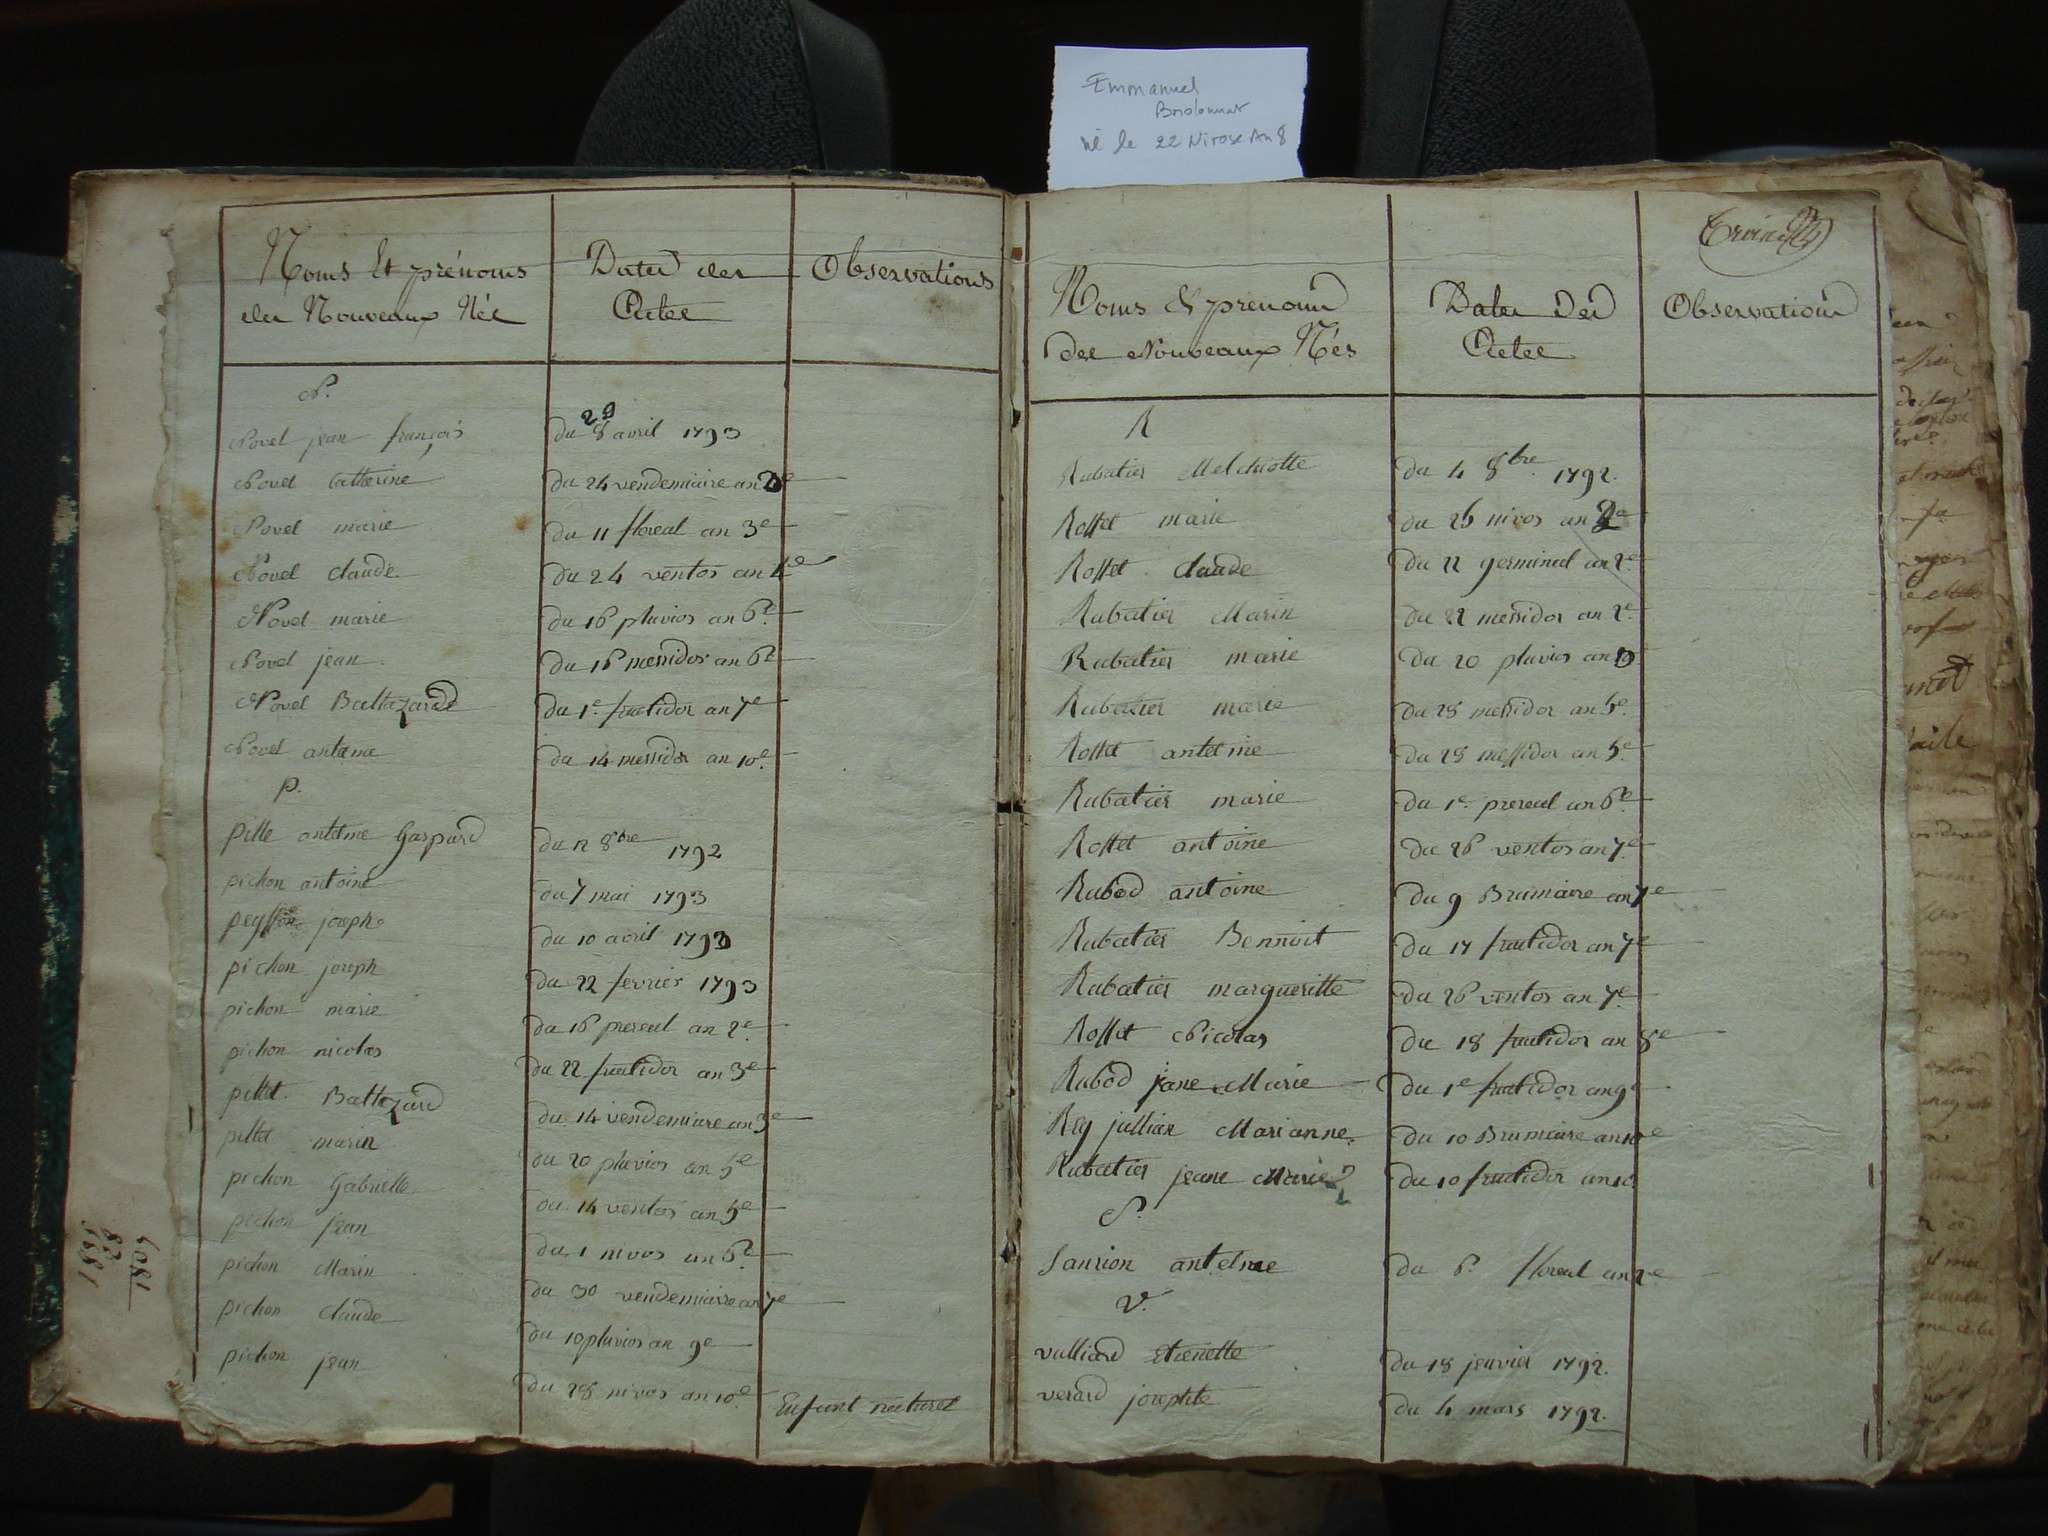 Emmanuel
né le 22 Nivose An 8
Noms Et prénoms
des Nouveaux Nés
Dates des
Actes
Observations
N.
Novel jean françois du 28 avril 1793
29
Novel Catherine du 24 vendemiaire an 2e
Novel marie du 11 floreal an 3e
Novel Claude du 24 ventos an 4e
Novel marie du 16 pluvios an 6e
Novel jean du 16 messidor an 6e
Novel Baltazarde du 1er fructidor an 7e
Novel antelme du 14 messidor an 10e
P.
pillet antelme Gaspard du 12 8bre 1792
pichon antoine du 7 mai 1793
joseph du 10 avril 1793
pichon joseph du 22 fevrier 1793
pichon marie du 16 prereal an 2e
pichon nicolas du 22 fructidor an 3e
pillet Baltazard du 14 vendemiaire an 5e
pillet marin du 20 pluvios an 5e
pichon Gabrielle du 14 ventos an 5e
pichon jean du 1 nivos an 6e
pichon Marin du 30 vendemiaire an 7e
pichon Claude du 10 pluvios an 9e
pichon jean du 28 nivos an 10e Enfant naturel
1809
88
1881
Noms & prenoms
des Nouveaux Nés
Dates Des
Actes
Observations
R
Rubatier Melchiotte du 4 8bre 1792.
Rosset marie du 26 nivos an 2e
Rosset Claude du 22 germinal an 2e
Rubatier Marin du 22 messidor an 2e
Rubatier marie du 20 pluvios an 3
Rubatier marie du 28 messidor an 5e
Rosset antelme du 28 messidor an 5e
Rubatier marie du 1er prereal an 6e
Rosset antoine du 26 ventos an 7e
Rubod antoine du 9 Brumaire an 7e
Rubatier Bennoit du 17 fructidor an 7e
Rubatier margueritte du 26 ventos an 7e
Rosset Nicolas du 18 fructidor an 8e
Rubod jane Marie du 1er fructidor an 9e
Rey jullian Marianne du 10 Brumaire an 10e
Rubatier jeane Marie du 10 fructidor an 10
S.
Saurion antelme du 6 floreal an 2e
V.
vulliard etienette du 18 jenvier 1792.
verard josephte du 4 mars 1792.